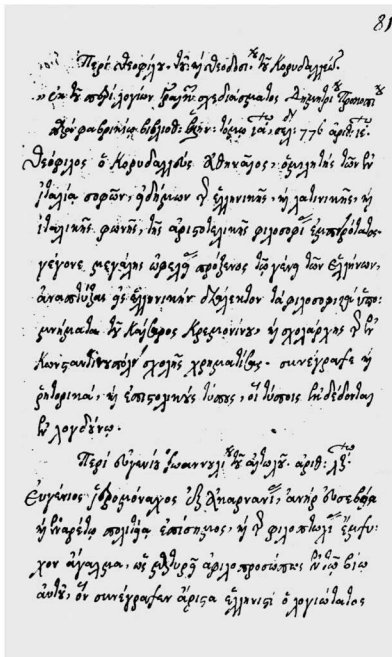 81
Περὶ Θεοφίλου, τοῦ καὶ Θεοδοσίου τοῦ Κορυδαλλέως.
ἐκ τοῦ περὶ λογίων Γραικῶν σχεδιάσματος Δημητρίου Προκοπίου
παρὰ Φαβρικίῳ βιβλιοθ: τόμῳ ια, σελ: 776 ἀριθ: ιε.
Θεόφιλος ὁ Κορυδαλλεὺς Ἀθηναῖος, ὁμιλητὴς τῶν ἐν
ἰταλίᾳ σοφῶν, εἰδήμων τῆς ἑλληνικῆς, καὶ λατινικῆς, καὶ
ἰταλικῆς φωνῆς, τῆς ἀριστοτελικῆς φιλοσοφίας ἐμπειρότατος.
γέγονε μεγάλης ὠφελείας πρόξενος τῷ γένει τῶν Ἑλλήνων,
ἀναπτύξας εἰς ἑλληνικὴν διάλεκτον τὰ φιλοσοφικὰ ὑπο-
μνήματα τοῦ Καίσαρος Κρεμονίνου, καὶ σχολάρχης τῆς ἐν
Κωνσταντινουπόλει σχολῆς χρηματίσας. συνέγραψε καὶ
ῥητορικά, καὶ ἐπιστολικοὺς τύπους, οἳ τύποις ἐκδέδονται
ἐν λογδούνῳ.
Περὶ Εὐγενίου Ἰωαννουλίου τοῦ αἰτωλοῦ. ἀριθ:
Εὐγένιος ἱερομόναχος ἐξ Ἀκαρνανίας, ἀνὴρ εὐσεβείᾳ
καὶ ἐναρέτῳ πολιτείᾳ ἐπίσημος, καὶ τῆς φιλοπτωχίας ἔμψυ-
χον ἄγαλμα, ὡς μαρτυρεῖ ἀφιλοπροσώπως ἐν τῷ βίῳ
αὐτοῦ, ὃν συνέγραψεν ἄριστα ἑλληνιστὶ ὁ λογιώτατος